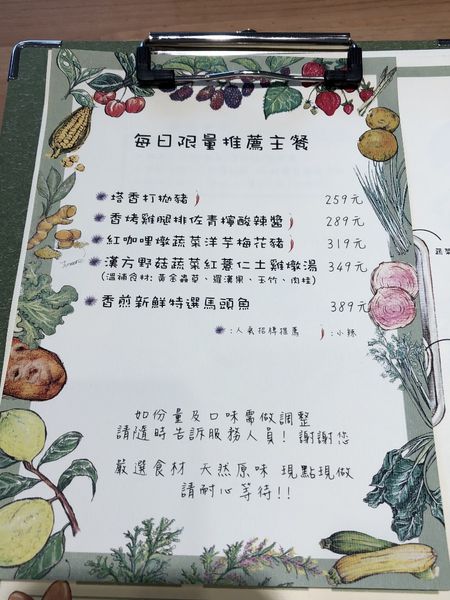 每日限量推薦主餐
塔香打拋豬 259元
香烤雞腿排佐青檸酸辣醬 289元
紅咖哩燉蔬菜洋芋梅花豬 319元
漢方野菇蔬菜紅薏仁土雞燉湯 349元
(溫補食材:黃金蟲草、羅漢果、玉竹、肉桂)
香煎新鮮特選馬頭魚 389元
:人氣招牌推薦 :小辣
如份量及口味需做調整
請隨時告訴服務人員! 謝謝您
嚴選食材 天然原味 現點現做
請耐心等待!!